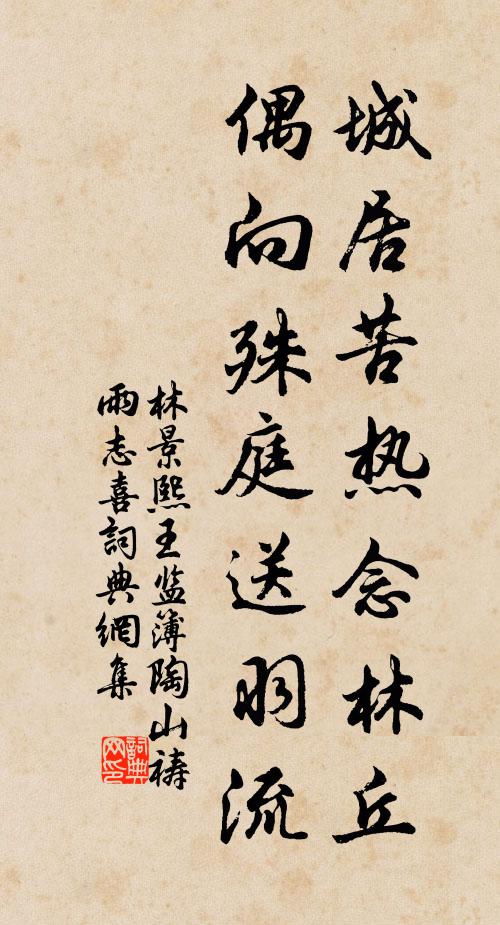 城居苦热念林丘
偶向殊庭送羽流
林景熙王监簿陶山祷
雨志喜詞典網集
詞典
网印